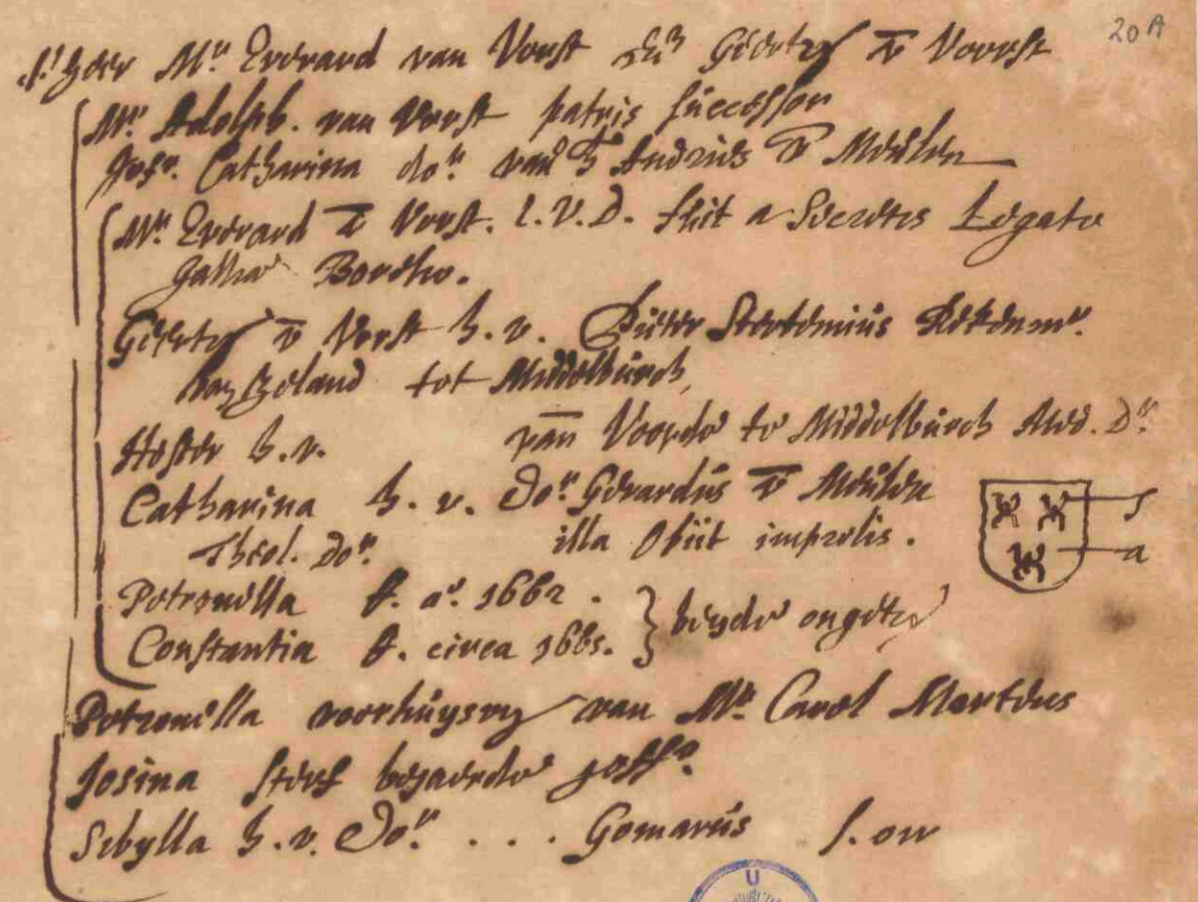 20 A
d'heer Mr. Everard van Vorst en Geertr. v Voorst
Mr. Adolph. van Vorst patris successor
Jofr. Catharina dor. van h Andries v Meulen
Mr. Everard v Vorst. I.V.D. fuit a Secretis Legato
Galliae
Geertr. v Vorst h.v. Pieter Stertemius Rekenmr.
van Zeland tot Middelburch
Hester h.v. van Voorde te Middelburch Med. Dr.
Catharina h.v. Dor. Gerardus v Meulen
Theol. Dor. illa Obiit improlis.
Petronilla f. ao. 1662.
Constantia f. circa 1665. } beyde ongetr.
f
a
Petronilla van Mr. Carol Mertens
Josina sterf bejaerde joffr.
Sibylla h.v. Dor. . . . Gomarus s. ow
U